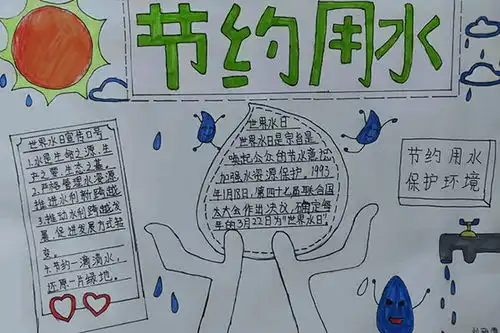 节约用水
世界水日宣传口号
1.水是生命之源,生
产之要,生态之基。
2.严格管理水资源
推进水利新跨越
3.推动水利跨越发
展,促进发展方式转
变。
4.节约一滴滴水,
还原一片绿地。
世界水日
世界水日是宗旨是
唤起公众的节水意识,
加强水资源保护。1993
年1月18日,第四十七届联合国
大大会作出决议,确定每
年的3月22日为"世界水日"。
节约用水
保护环境